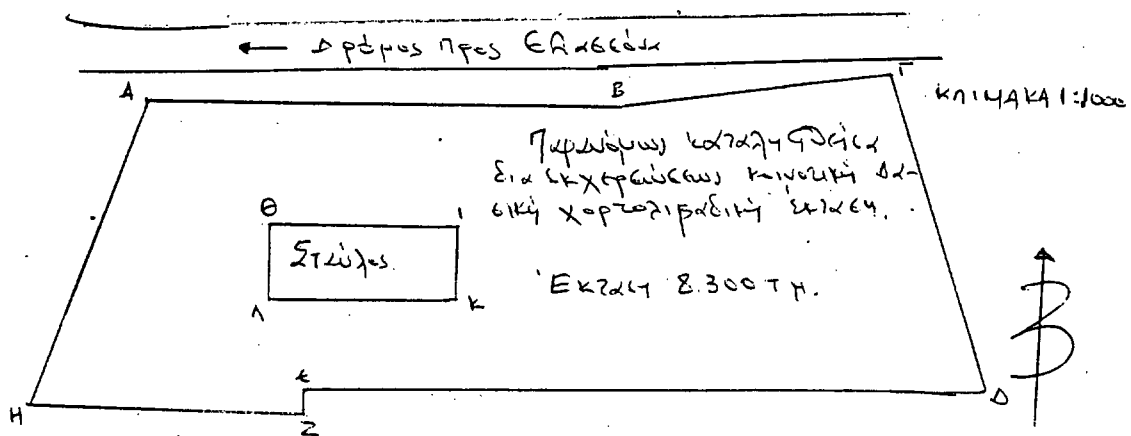 ← Δρόμος προς Ελασσόνα
Α Β Γ
ΚΛΙΜΑΚΑ 1:1000
Παρανόμως καταληφθείσα
δια εκχερσώσεως κοινοτική δα-
σική χορτολιβαδική έκταση.
Θ Ι
Σταύλος
Έκταση 8.300 τ.μ.
Λ Κ
Β
Η Ζ Ε Δ